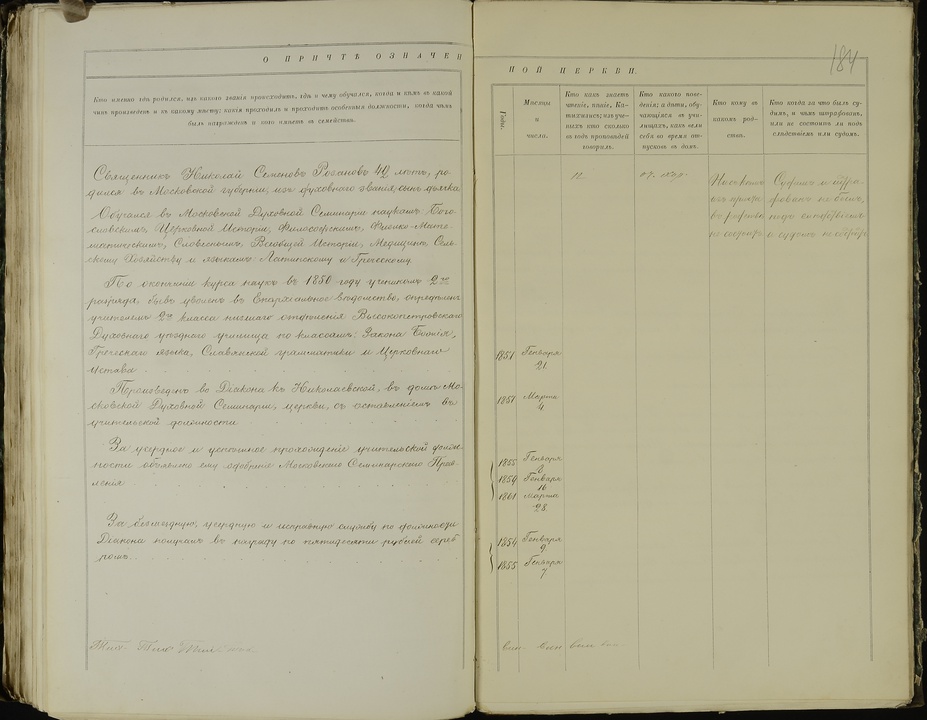 О ПРИЧТѢ ОЗНАЧЕН
Кто именно гдѣ родился, изъ какого званія происходитъ, гдѣ и чему обучался, когда и кѣмъ въ какой
чинъ произведенъ и къ какому мѣсту; какія проходилъ и проходитъ особенныя должности, когда чѣмъ
былъ награжденъ и кого имѣетъ въ семействѣ.
Священникъ Николай Семеновъ Розановъ 42 лѣтъ, ро-
дился въ Московской губерніи, изъ духовнаго званія, сынъ дьячка.
Обучался въ Московской Духовной Семинаріи наукамъ: Бого-
словскимъ, Церковной Исторіи, Философскимъ, Физико-Мате-
матическимъ, Словеснымъ, Всеобщей Исторіи, Медицинѣ, Сель-
скому Хозяйству и языкамъ: Латинскому и Греческому.
По окончаніи курса наукъ въ 1850 году ученикомъ 2го
разряда, бывъ уволенъ въ Епархіальное вѣдомство, опредѣленъ
учителемъ 2го класса низшаго отдѣленія Высокопетровскаго
Духовнаго уѣзднаго училища по классамъ: Закона Божія,
Греческаго языка, Славянской грамматики и Церковнаго
устава
Произведенъ во Діакона къ Николаевской, въ домѣ Мо-
сковской Духовной Семинаріи, церкви, съ оставленіемъ въ
учительской должности
За усердное и успѣшное прохожденіе учительской долж-
ности объявлено ему одобреніе Московскаго Семинарскаго Прав-
ленія
За безмездную, усердную и исправную службу по должности
Діакона получалъ въ награду по пятидесяти рублей сереб
ромъ
НОЙ ЦЕРКВИ.
184
Годы.
Мѣсяцы
и
числа.
Кто какъ знаетъ
чтеніе, пѣніе, Ка-
тихизисъ; изъ уче-
ныхъ кто сколько
въ годъ проповѣдей
говорилъ.
Кто какого пове-
денія; а дѣти, обу-
чающіяся въ учи-
лищахъ, какъ вели
себя во время от-
пусковъ въ домъ.
Кто кому въ
какомъ род-
ствѣ.
Кто когда за что былъ су-
димъ, и чѣмъ штрафованъ,
или не состоитъ ли подъ
слѣдствіемъ или судомъ.
1851 Генваря
21.
1851 Марта
4
1855 Генваря
1859 Генваря
16
1861 Марта
28
1854 Генваря
9
1855 Генваря
7